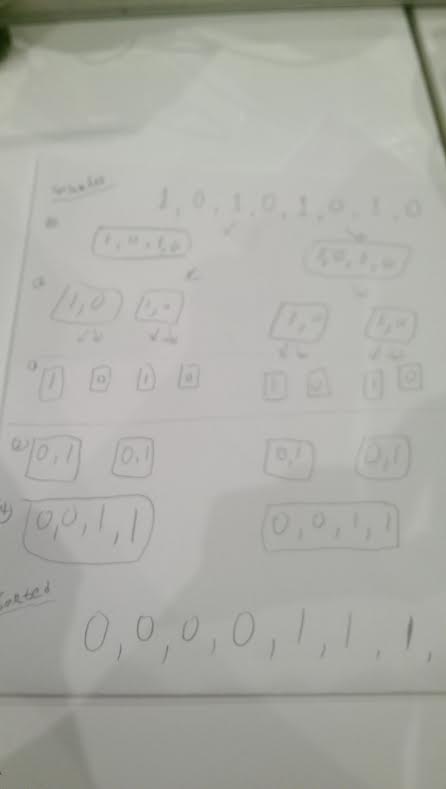 1, 0, 1, 0, 1, 0, 1, 0
1, 0, 1, 0 1, 0, 1, 0
1, 0 1, 0 1, 0 1, 0
1 0 1 0 1 0 1 0
0, 1 0, 1 0, 1 0, 1
0, 0, 1, 1 0, 0, 1, 1
Sorted
0, 0, 0, 0, 1, 1, 1,